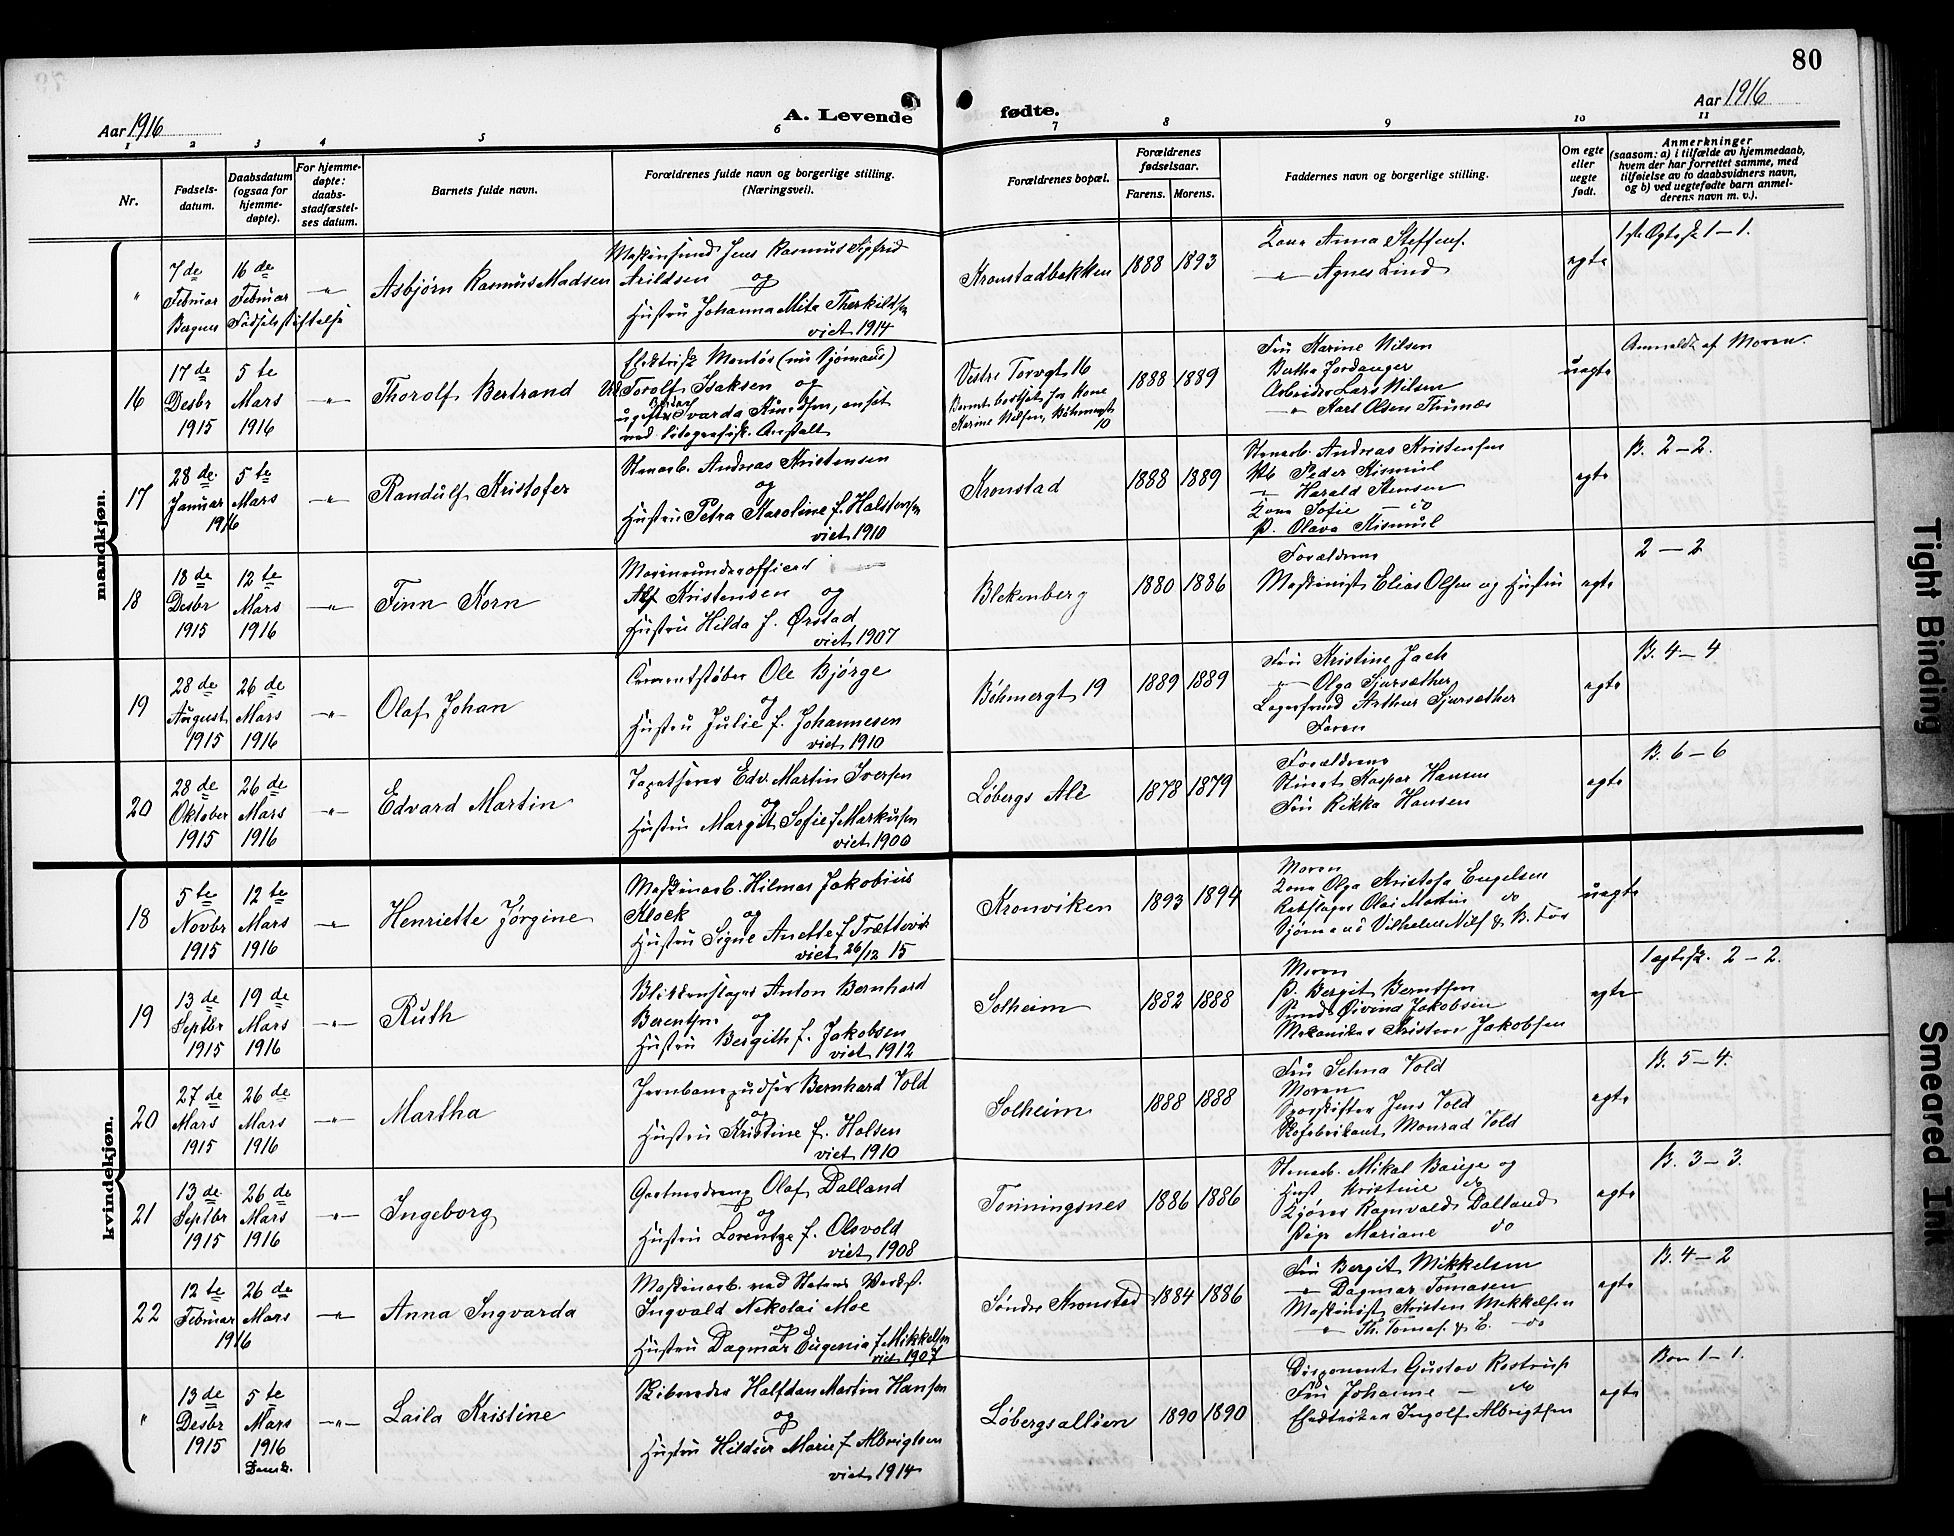 80
Aar 1916
A. Levende
fødte.
Aar 1916
1 2 3 4 5 6 7 8 9 10 11
Nr.
Fødsels-
datum.
Daabsdatum
(ogsaa for
hjemme-
døpte).
For hjemme-
døpte:
daabs-
stadfæstel-
ses datum.
Barnets fulde navn.
Forældrenes fulde navn og borgerlige stilling.
(Næringsvei).
Forældrenes bopæl.
Forældrenes
fødselsaar.
Farens. Morens.
Faddernes navn og borgerlige stilling.
Om egte
eller
uegte
født.
Anmerkninger
(saasom: a) i tilfælde av hjemmedaab,
hvem der har forrettet samme, med
tilføielse av to daabsvidners navn,
og b) ved uegtefødte barn anmel-
derens navn m. v.).
mandkjøn.
"
7de
Februar
Bergens
16de
Februar
Fødselsstiftelse
Asbjørn Rasmus Madsen
Maskinsmed Jens Rasmus Sigfrid
Arildsen og
Hustru Johanna Mita Therkildsen
viet 1914
Kronstadbakken
1888
1893
Kona Anna Steffens.
" Agnes Lind
egte
1ste Egtesk 1-1.
16
17de
Desbr
1915
5te
Mars
1916
Thorolf Bertrand
Elektrisk Montør (nu Sjømand)
Torolf Isaksen og
ugift Svarda Knudsen, ansat
ved Litografisk. Anstalt
Vestre Torvgt. 16
Barnet bortsat hos Kone
Karine Nilsen, Bøhmergt
10
1888
1889
Fru Karine Nilsen
Bertha Jordanger
Arbeider Lars Nilsen
" Karl Olsen Thunæs
uegte
Anmeldt af Moren.
17
28de
Januar
1916
5te
Mars
Randulf Kristofer
Stenarb. Andreas Kristensen
og
Hustru Petra Karoline f. Halstensen
viet 1910
Kronstad
1888
1889
Stenarb. Andreas Kristensen
Peder Kismul
" Harald Stensen
Kona Sofie - do
P. Olava Kismul
egte
B. 2-2.
18
18de
Desbr
1915
12te
Mars
1916
Finn Korn
Marineunderofficer
Alf Kristensen og
Hustru Hilda f. Ørstad
viet 1907
Blekenberg
1880
1886
Forældrene
Maskinist Elias Olsen og Hustru
egte
2-2
19
28de
August
1915
26de
Mars
1916
Olaf Johan
Cementstøber Ole Bjørge
og
Hustru Julie f. Johannesen
viet 1910
Bøhmergt 19
1889
1889
Fru Kristine Jach
" Olga Sjursæther
Lagerfrmd Arthur Sjursæther
Faren
egte
B. 4-4
20
28de
Oktober
1915
26de
Mars
1916
Edvard Martin
Tapetserer Edv. Martin Iversen
og
Hustru Margit Sofie f. Markussen
viet 1900
Løbergs Alé
1878
1879
Forældrene
Stuert Kaspar Hansen
Fru Rikka Hansen
egte
B. 6-6
kvindekjøn.
18
5te
Novbr
1915
12te
Mars
1916
Henriette Jørgine
Maskinarb. Hilmar Jakobius
Klock og
Hustru Signe Anette f. Trættevik
viet 26/12 15
Kronviken
1893
1894
Moren
Kona Olga Kristofa Engelsen
Rebslager Olai Martin do
Sjømand Vilhelm Nilf & B. Far
uegte
19
13de
Septbr
1915
19de
Mars
1916
Ruth
Blikkenslager Anton Bernhard
Berentsen og
Hustru Bergith f. Jakobsen
viet 1912
Solheim
1882
1888
Moren
P. Bergit Berntsen
Smed Øivind Jakobsen
Mekaniker Kristen Jakobsen
egte
1 egtesk. 2-2.
20
27de
Mars
1915
26de
Mars
1916
Martha
Jernbanepudser Bernhard Vold
og
Hustru Kristine f. Holsen
viet 1910
Solheim
1888
1888
Fru Selma Vold
Moren
Sporskifter Jens Vold
Skofabrikant Monrad Vold
egte
B. 5-4.
21
13de
Septbr
1915
26de
Mars
1916
Ingeborg
Gartnerdreng Olaf Dalland
og
Hustru Lorentze f. Olsvold
viet 1908
Tonningsnes
1886
1886
Stenarb. Mikal Bauge og
Hust Kristine do
Kjører Ragnvald Dalland
Pige Mariane do
egte
B. 3-3.
22
12te
Februar
1916
26de
Mars
Anna Ingvarda
Maskinarb. ved Statens Verkst.
Ingvald Nikolai Moe
og
Hustru Dagmar Eugenia f. Mikkelsen
viet 1907
Søndre Kronstad
1884
1886
Fru Bergit Mikkelsen
" Dagmar Tomasen
Maskinist Kristen Mikkelsen
" Th. Tomas. & E. do
egte
B. 4-2
"
13de
Desbr
1915
5te
Mars
1916
Laila Kristine
Halfdan Martin Hansen
og
Hustru Hildur Marie f. Albrigtsen
viet 1914
Løbergsalléen
1890
1890
Disponent Gustav Rostrup
Fru Johanne - do
Elektriker Ingolf Albrigtsen
egte
Barn 1-1.
Tight Binding
Smeared Ink